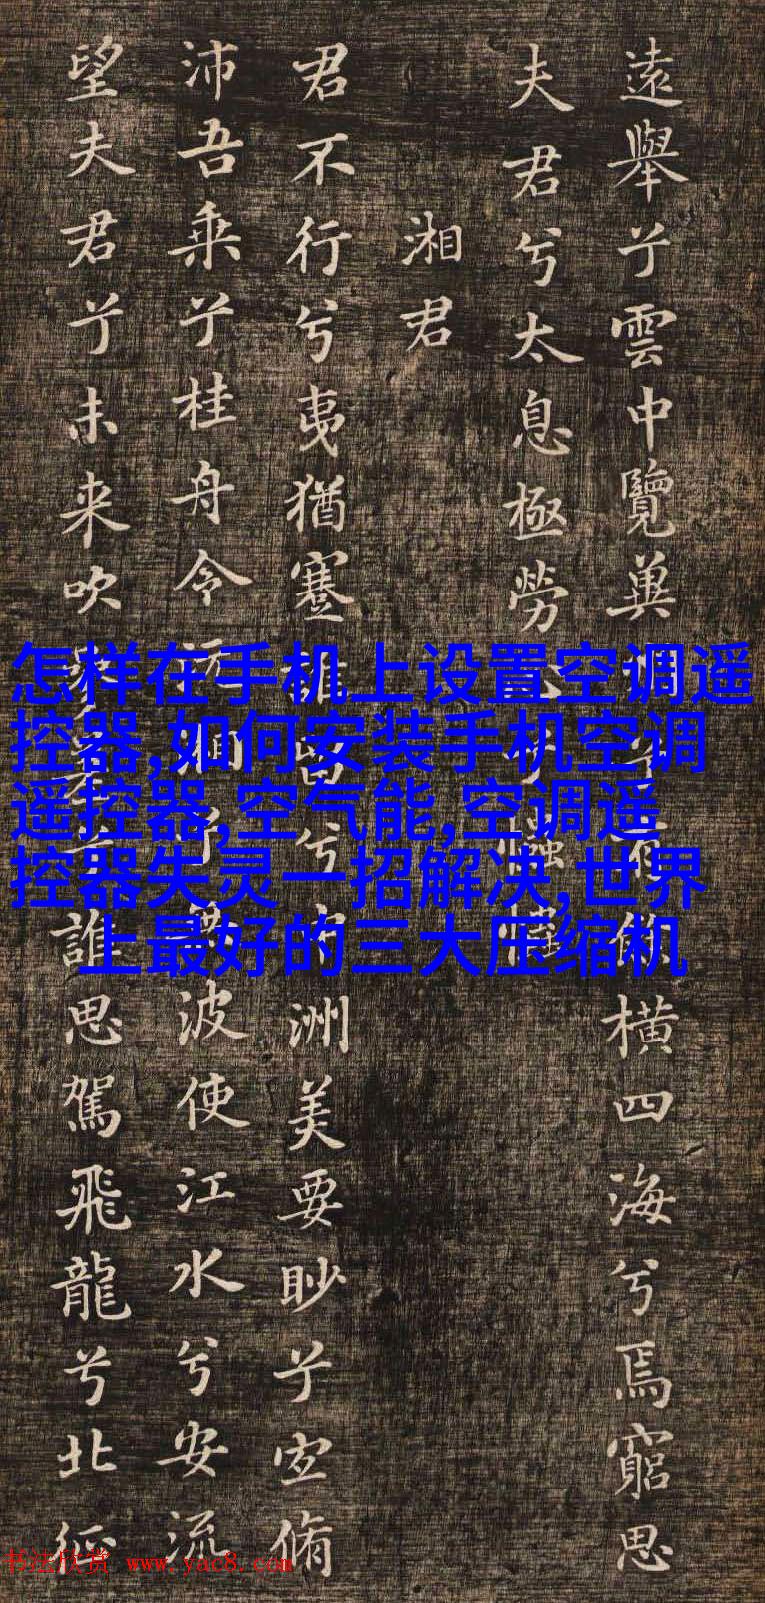 遠舉兮雲中覽兾州兮有餘橫四海兮焉窮思
夫君兮太息極勞心兮
湘君
君不行兮夷猶蹇誰留兮中洲美要眇兮宜脩
沛吾乘兮桂舟令沅湘兮無波使江水兮安流
望夫君兮未来吹參差兮誰思駕飛龍兮北征
怎样在手机上设置空调遥
控器,如何安装手机空调
遥控器,空气能,空调遥
控器失灵一招解决,世界
上最好的三大压缩机
书法欣赏 www.yac8.com